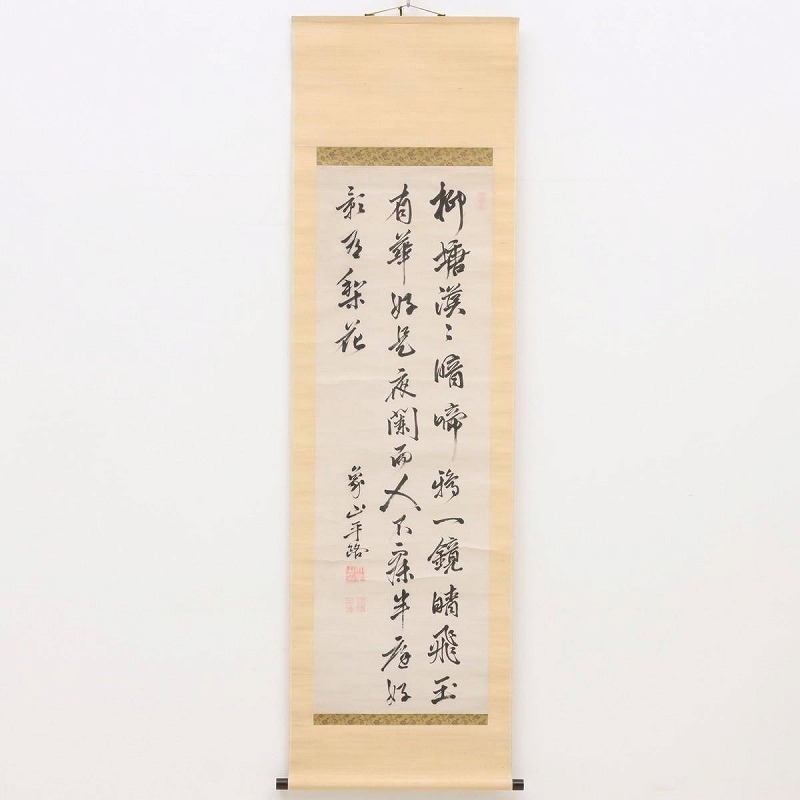 柳塘漠〻暗啼鴉一鏡晴飛玉
有華好是夜闌而人不寐半庭好
影在梨花
象山平啓